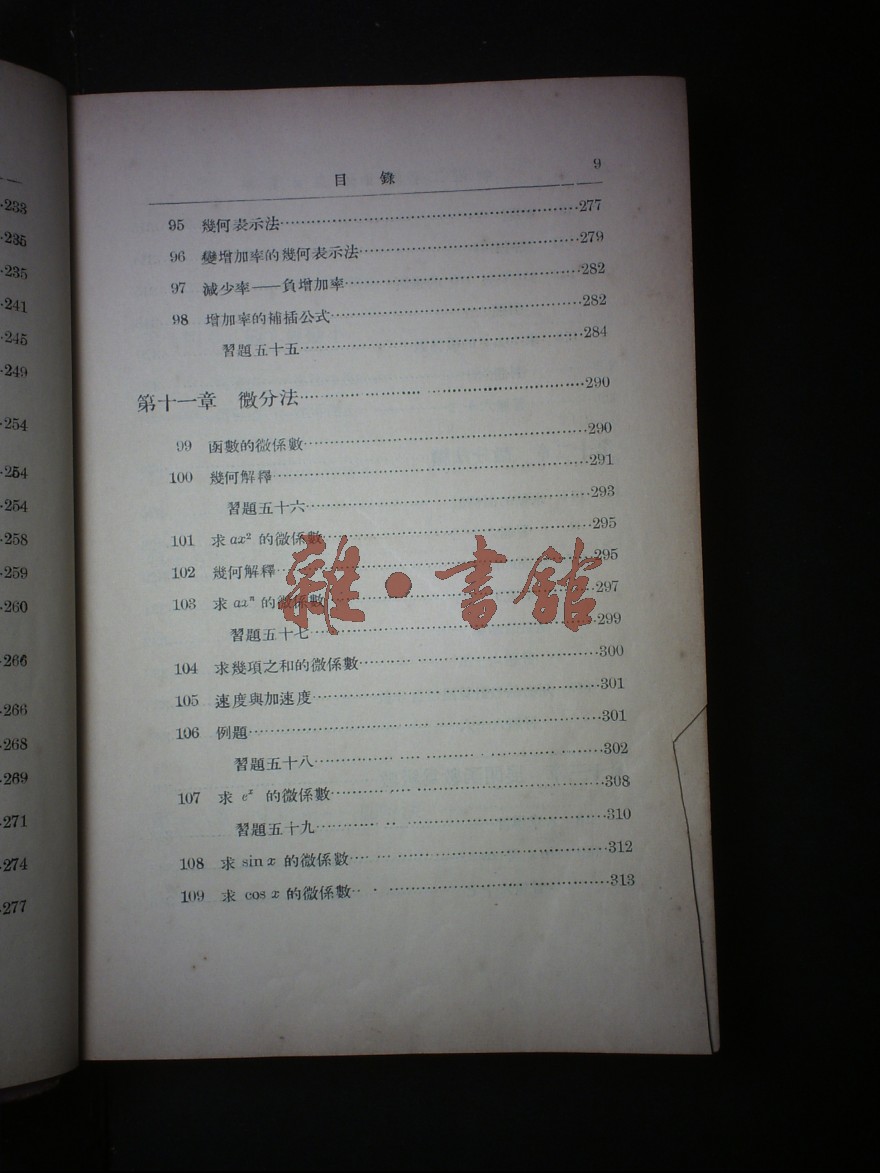 233
235
235
241
245
249
254
254
254
258
259
260
266
266
268
269
271
274
277
目 錄 9
95 幾何表示法 277
96 變增加率的幾何表示法 279
97 減少率——負增加率 282
98 增加率的補插公式 282
習題五十五 284
第十一章 微分法 290
99 函數的微係數 290
100 幾何解釋 291
習題五十六 293
101 求 ax² 的微係數 295
102 幾何解釋 295
103 求 axⁿ 的微係數 297
習題五十七 299
104 求幾項之和的微係數 300
105 速度與加速度 301
106 例題 301
習題五十八 302
107 求 eˣ 的微係數 308
習題五十九 310
108 求 sin x 的微係數 312
109 求 cos x 的微係數 313
雜·書館